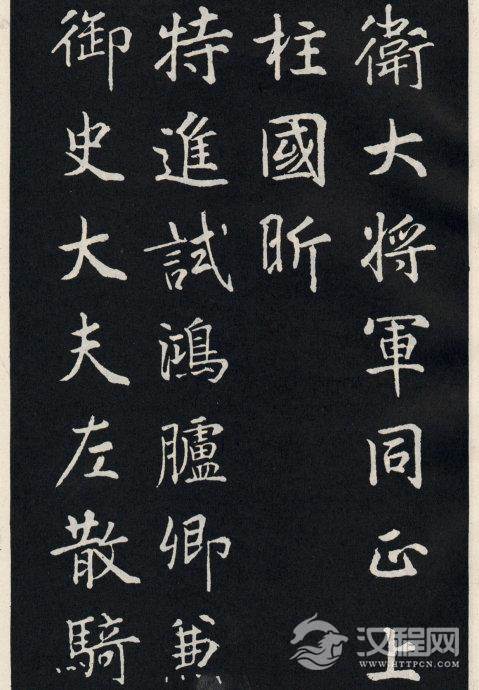 衛大将軍同正上
柱國昕
特進試鴻臚卿兼
御史大夫左散騎
汉程网
WWW.HTTPCN.COM